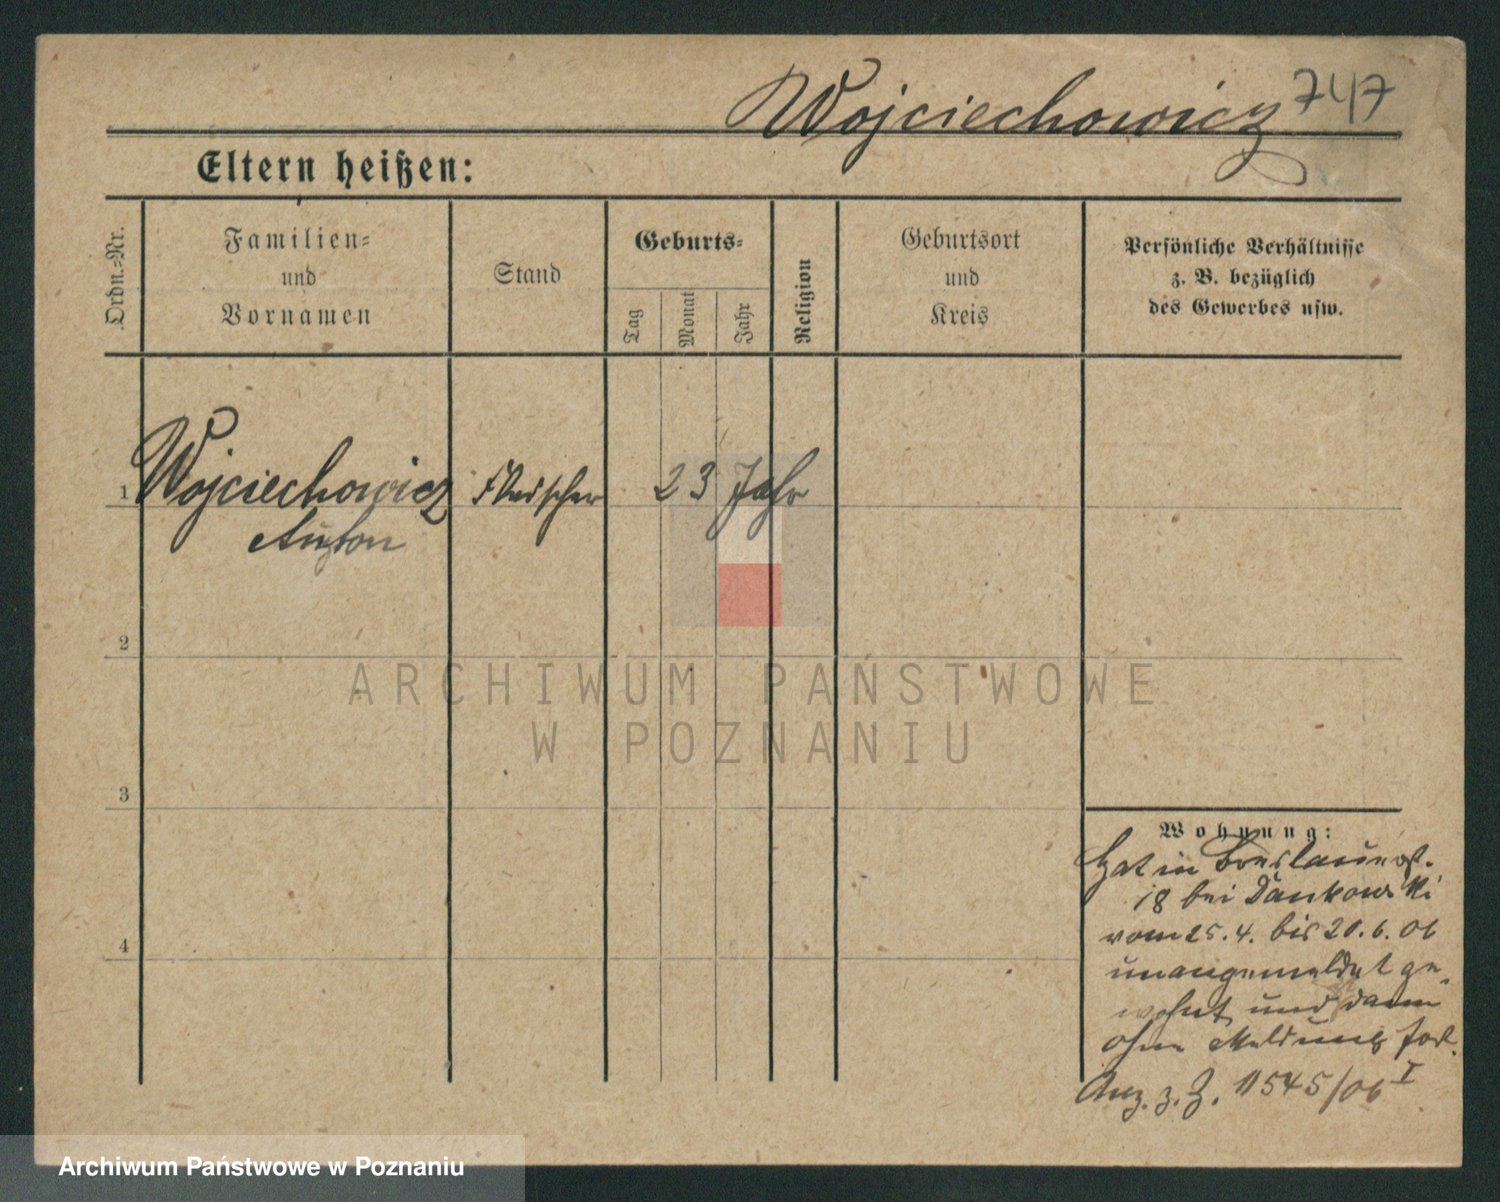 Wojciechowicz 747
Eltern heißen:
Ordn.-Nr.
Familien-
und
Vornamen
Stand
Geburts-
Tag
Monat
Jahr
Religion
Geburtsort
und
Kreis
Persönliche Verhältnisse
z. B. bezüglich
des Gewerbes usw.
1 Wojciechowicz Fleischer 23 Jahr
Anton
2
3
4
Wohnung:
Hat in Breslauerst.
18 bei Dankowski
vom 25.4. bis 20.6.06
unangemeldet ge-
wohnt und dann
ohne Meldung fort.
Anz. z. Z. 11545/06 I
ARCHIWUM PAŃSTWOWE
W POZNANIU
Archiwum Państwowe w Poznaniu